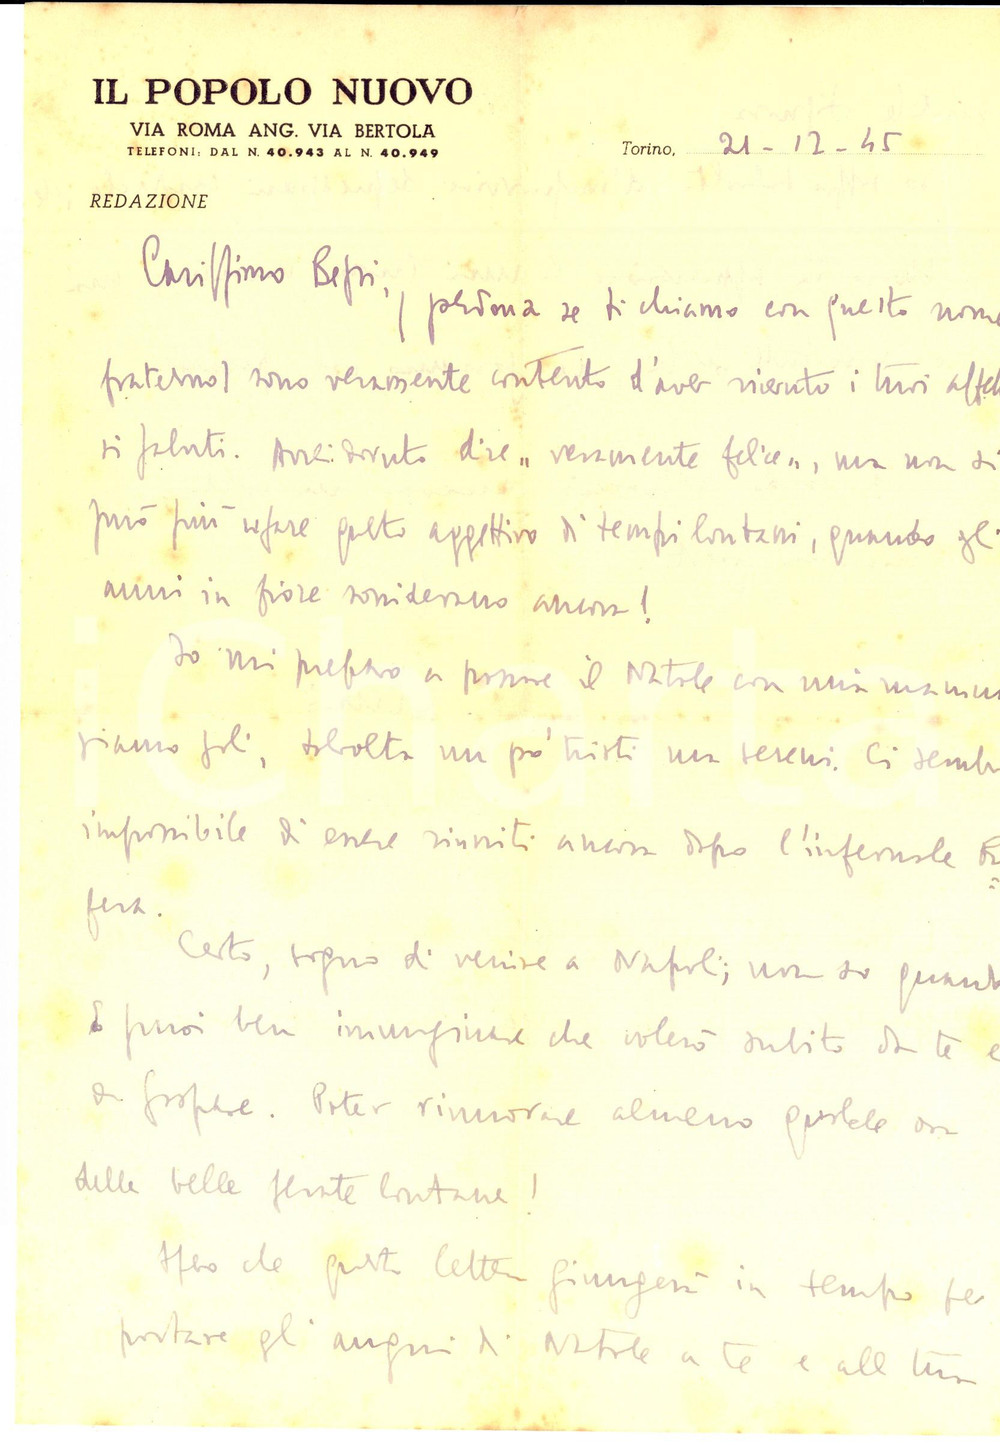 IL POPOLO NUOVO
VIA ROMA ANG. VIA BERTOLA
TELEFONI: DAL N. 40.943 AL N. 40.949
Torino, 21-12-45
REDAZIONE
Carissimo Beppi,
(perdona se ti chiamo con questo nome
fraterno) sono veramente contento d'aver ricevuto i tuoi affet
si saluti. Avrei dovuto dire „veramente felice„, ma non si
può più usare questo aggettivo di tempi lontani, quando gli
anni in fiore sorridevano ancora!
Io mi preparo a passare il Natale con mia mamma
siamo soli, talvolta un po' tristi ma sereni. Ci sembra
impossibile di essere riuniti ancora dopo l'infernale bu
fera.
Certo, sogno di venire a Napoli; non so quando
E puoi ben immaginare che volerò subito da te e
da Gaspare. Poter rinnovare almeno qualche ora
delle belle serate lontane!
Spero che questa lettera giungerà in tempo per
portare gli auguri di Natale a te e alla tua
iCharta